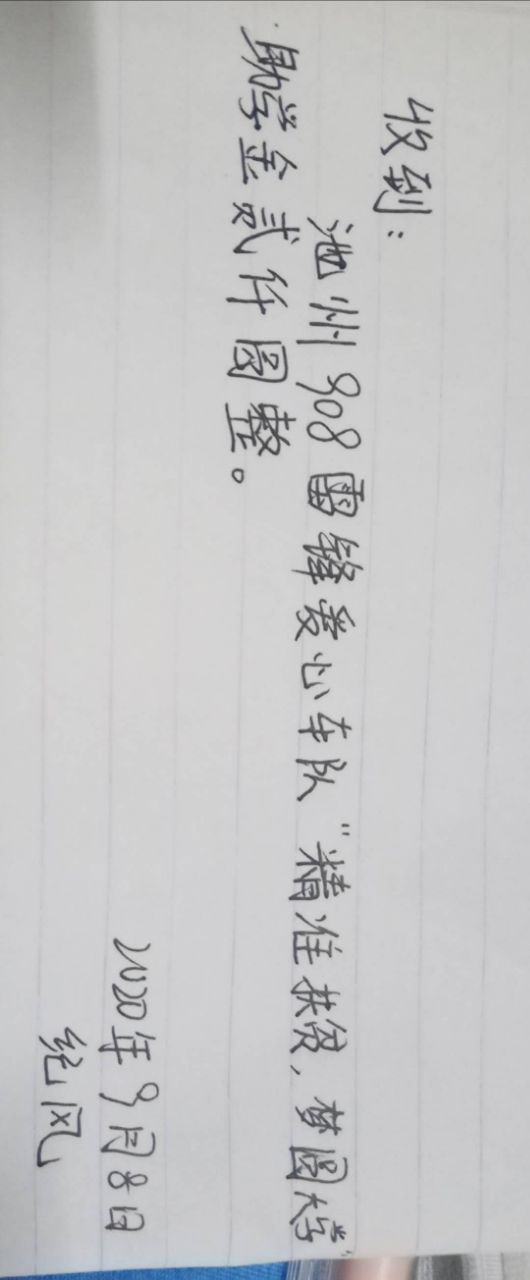 收到：
池州908雷锋爱心车队“精准扶贫，梦圆大学”
助学金贰仟圆整。
2020年9月8日
纪风